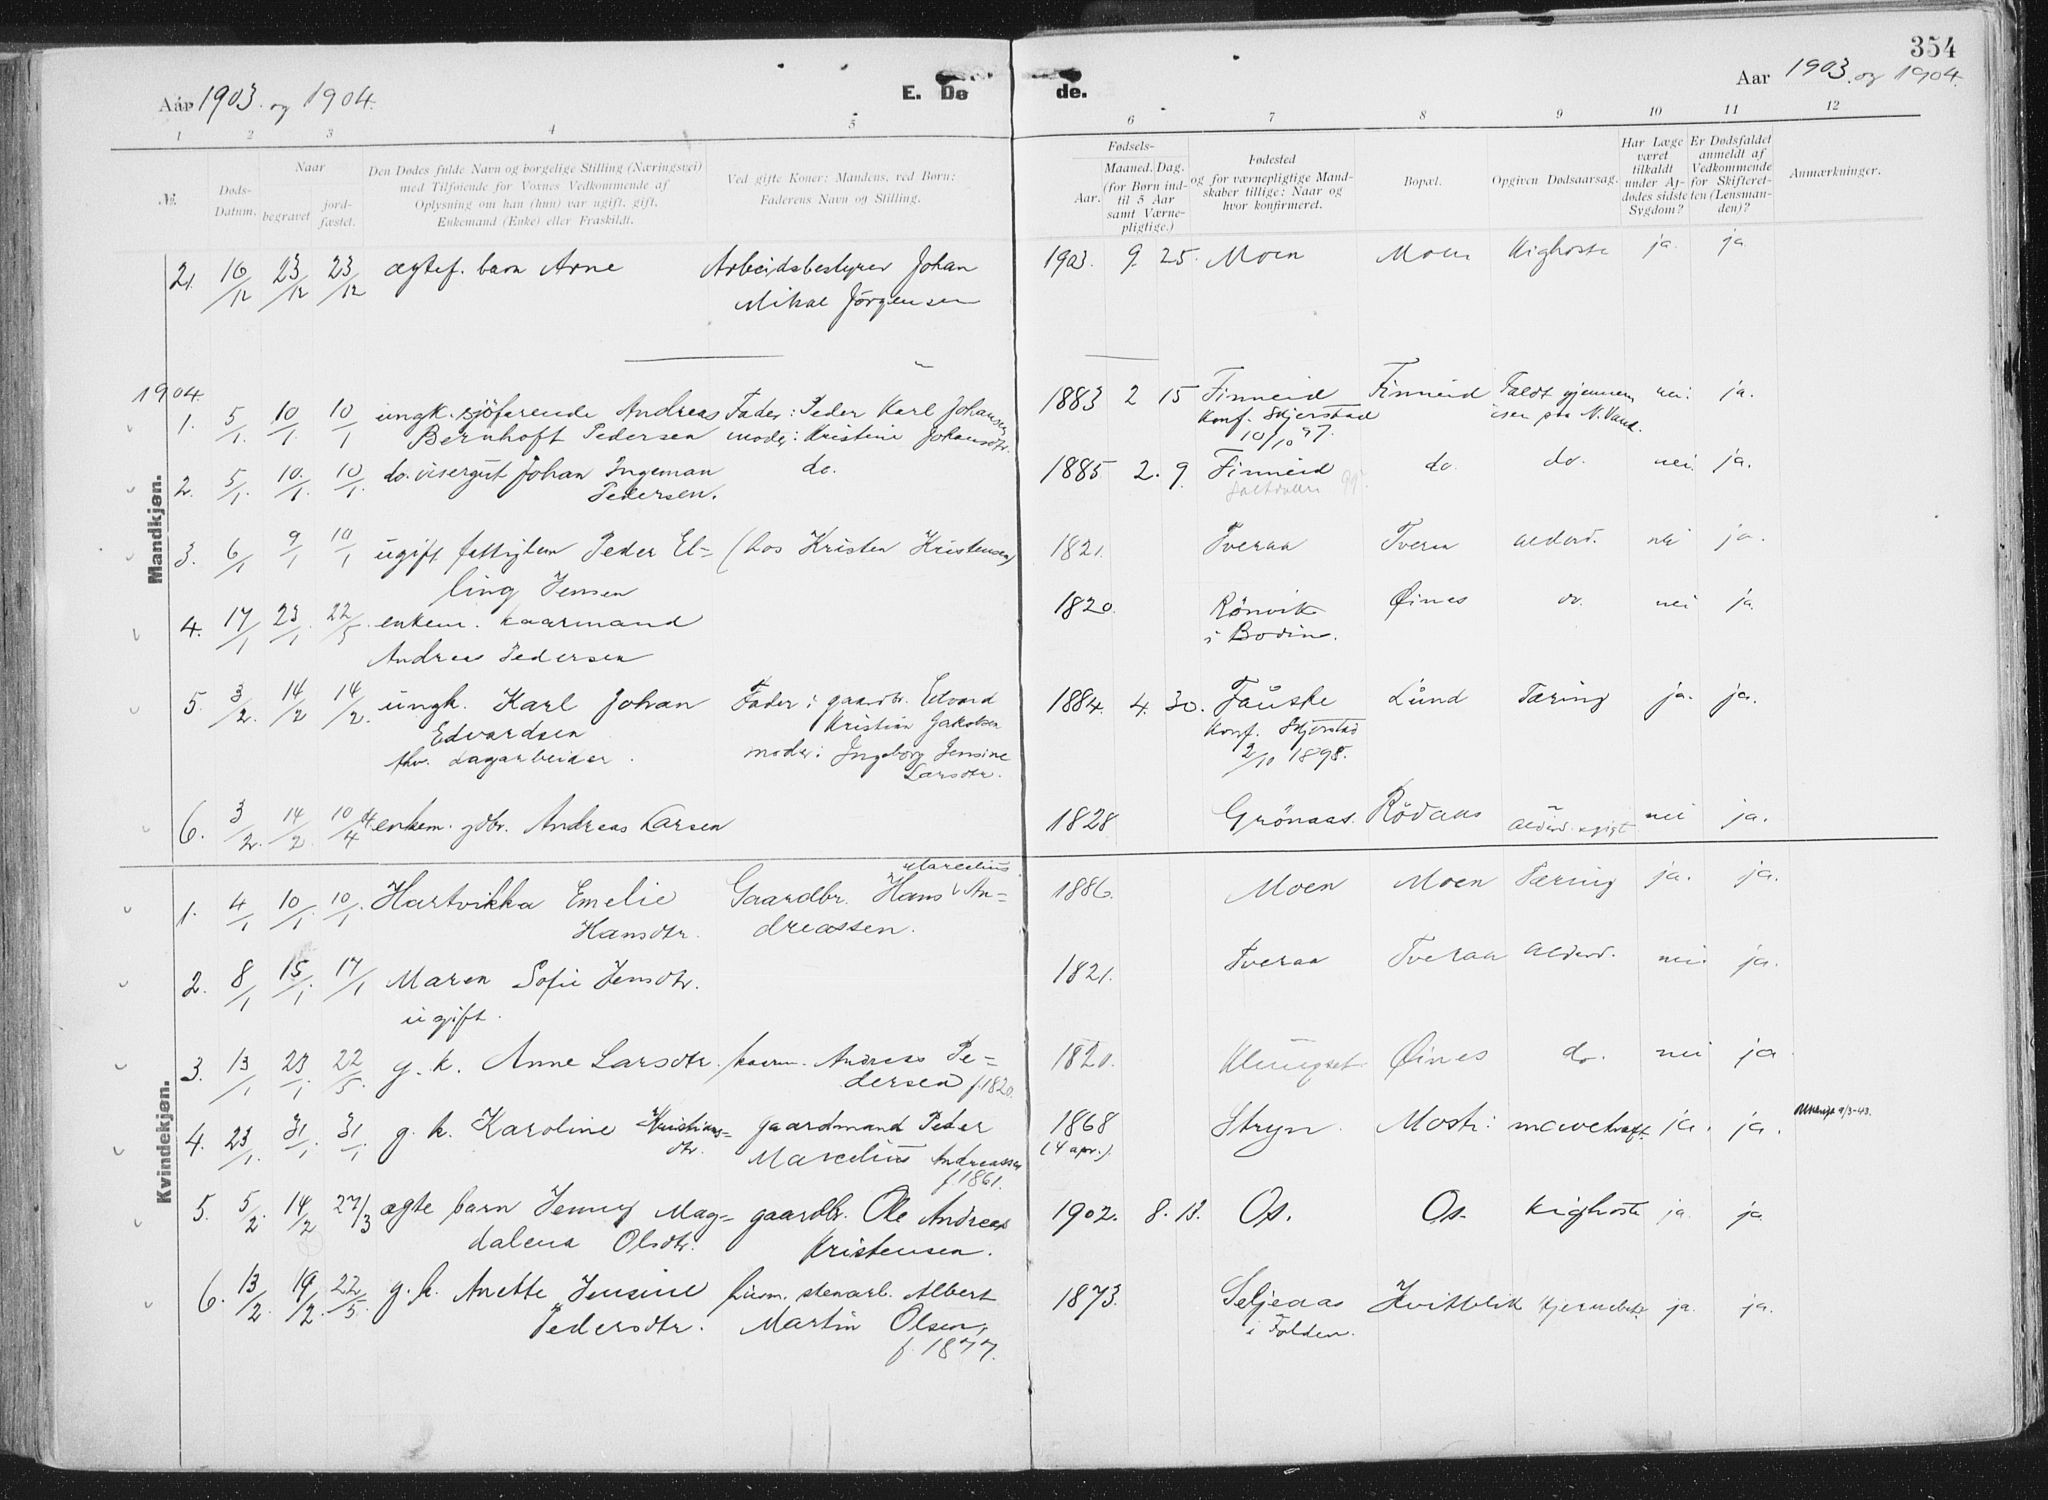 354
Aar 1903 og 1904.
E. Dø de.
Aar 1903 og 1904.
1 2 3 4 5 6 7 8 9 10 11 12
№.
Døds-Datum.
Naar
begravet
jord-fæstet.
Den Dødes fulde Navn og borgelige Stilling (Næringsvei)
med Tilføiende for Voxnes Vedkommende af
Oplysning om han (hun) var ugift, gift,
Enkemand (Enke) eller Fraskildt.
Ved gifte Koner: Mandens, ved Børn:
Faderens Navn og Stilling.
Fødsels-
Aar.
Maaned. Dag.
(for Børn ind-
til 5 Aar
samt Værne-
pligtige.)
Fødested
og for værnepligtige Mand-
skaber tillige: Naar og
hvor konfirmeret.
Bopæl.
Opgiven Dødsaarsag.
Har Læge
været
tilkaldt
under Af-
dødes sidste
Sygdom?
Er Dødsfaldet
anmeldt af
Vedkommende
for Skifteret-
ten (Lensman-
den)?
Anmærkninger.
Mandkjøn.
21. 16/12 23/12 23/12 ægtef. barn Arne Arbeidsbestyrer Johan 1903. 9. 25. Moen Moen Kighoste ja. ja.
Mikal Jörgensen
1904.
1. 5/1. 10/1. 10/1 ungk. sjöfarende Andreas Fader: Peder Karl Johansen 1883 2 15 Finneid Finneid Faldt gjennem nei. ja.
Bernhoft Pedersen moder: Kristine Johansdtr. Konf. Skjerstad isen paa N. Vand.
10/10 97.
2. 5/1. 10/1. 10/1. do. visergut Johan Ingeman do. 1885 2. 9. Finneid do. do. nei. ja.
Pedersen.
3. 6/1 9/1 10/1 ugift fattiglem Peder El= (hos Kristen Kristensen) 1821. Tveraa Tveraa alderd. nei ja.
ling Jensen
4. 17/1 23/1. 22/5. enkem. kaarmand 1820. Rönvik Øines do. nei ja.
Andreas Pedersen i Bodin.
5. 3/2. 14/2 14/2. ungk. Karl Johan Fader: gaardbr. Edvard 1884. 4. 30. Fauske Lund Tæring ja. ja.
Edvardsen Kristian Jakobsen Konf. Skjerstad
fhv. dagarbeider. moder: Ingeborg Jensine 2/10 1898.
Larsdtr.
6. 3/2. 14/2. 10/4 04 enkem. gdbr. Andreas Larsen 1828 Grönaas. Rödaas alderd. nei ja.
Kvindekjøn.
1. 4/1 10/1. 10/1. Hartvikka Emelie Gaardbr. Hans Marcelius An= 1886. Moen Moen Tæring ja. ja.
Hansdtr. dreassen.
2. 8/1 15/1. 17/1 Maren Sofie Jensdtr. 1821. Tveraa Tveraa alderd. nei. ja.
ugift.
3. 13/1 23/1. 22/5. g. k. Anne Larsdtr. kaarm. Andreas Pe= 1820. Klungset Øines do. nei ja
dersen f. 1820.
4. 23/1. 31/1. 31/1 g. k. Karoline Kristians= gaardmand Peder 1868 Stryn. Mostr: mavekræft ja. ja.
dtr. Marcelius Andreassen (4 apr.)
f. 1861.
5. 5/2. 14/2 27/3 ægte barn Jenny Mag= gaardbr. Ole Andreas 1902. 8. 13. Os. Os. Kighoste ja. ja.
dalena Olsdtr. Kristensen.
6. 13/2. 19/2. 22/5. g. k. Anette Jensine stenarb. Albert 1873. Seljeaas Hvitblik ja. ja.
Pedersdtr. Martin Olsen, i Folden.
f. 1877.